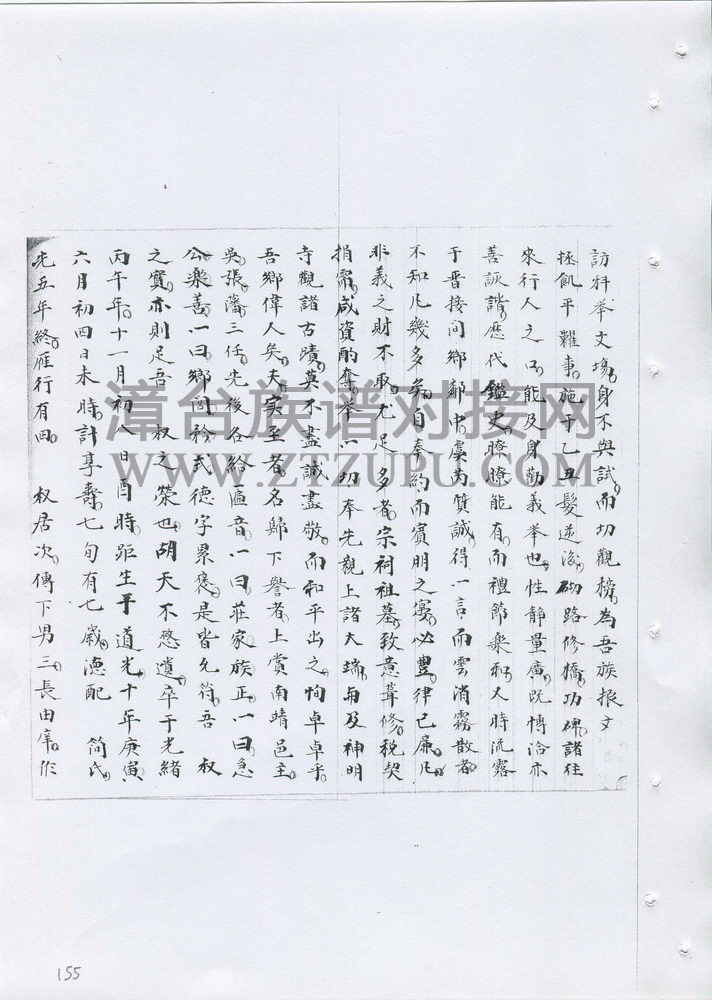 訪科举文塲身不與試而切觀榜為吾族振文
拯飢平難事施于乙丑髮逆後砌路修橋功碑諸往
來行人之口能及身勸義举也性静量廣既愽洽亦
善詼諧歷代鑑史瞭瞭能有而禮節樂和又時流露
于晋接间鄉鄰中虞芮質誠得一言而雲消霧散者
不知凡幾多矣自奉約而賓朋之宴必豊律己廉凡
非義之財不取尤足多者宗祠祖墓致意葺修税契
捐需咸資酌奪举一切奉先親上諸大端与及神明
寺觀諸古蹟莫不盡誠盡敬而和平出之恂卓卓乎
吾鄉偉人矣夫实至者名歸下譽者上賞南靖邑主
吳張潘三任先後各給匾音一曰莊家族正一曰急
公樂善一曰鄉閭矜式德字累褒是皆允符吾 叔
之實亦則足吾 叔之榮也胡天不憗遺卒于光緒
丙午年十一月初八日酉時距生平道光十年庚寅
六月初四日未時計享壽七旬有七歲德配 简氏
先五年終雁行有四 叔居次傳下男三長由庠作
漳台族谱对接网
WWW.ZTZUPU.COM
155